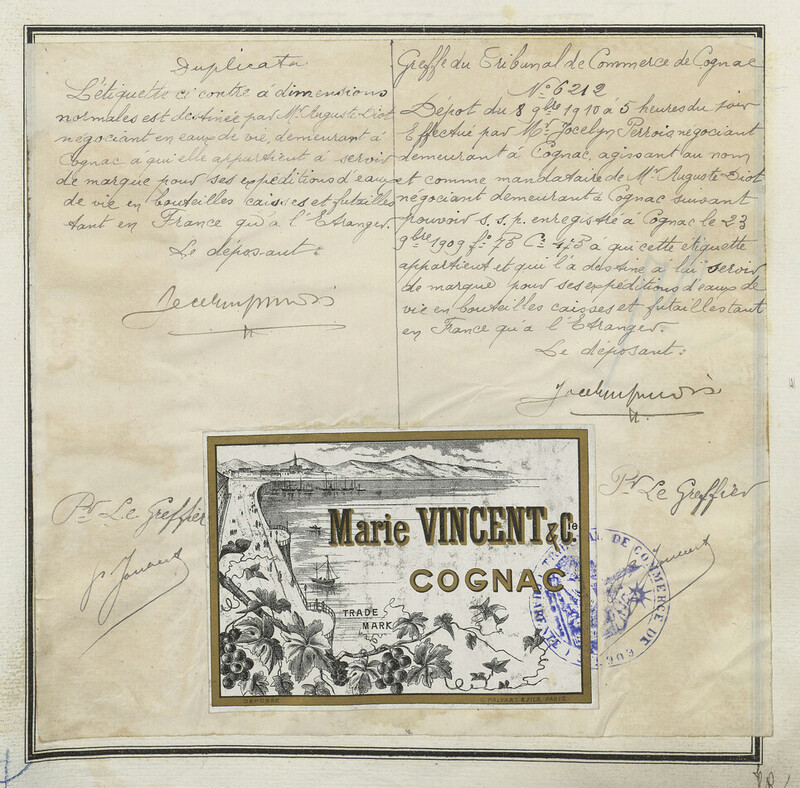 Duplicata
L'étiquette ci contre à dimensions
normales est destinée par Mr Auguste Diot
négociant en eaux de vie, demeurant à
Cognac à qui elle appartient à servir
de marque pour ses expéditions d'eaux
de vie en bouteilles caisses et futailles
tant en France qu'à l'Etranger.
Le déposant :
Pr Le Greffier
Greffe du Tribunal de Commerce de Cognac
No 6212
Dépot du 8 9bre 1910 à 5 heures du soir
Effectué par Mr Jocelyn Perrois négociant
demeurant à Cognac, agissant au nom
et comme mandataire de Mr Auguste Diot
négociant demeurant à Cognac suivant
pouvoir s. s. p. enregistré à Cognac le 23
9bre 1909 fo 75 Ce 475 à qui cette étiquette
appartient et qui l'a destiné à lui servir
de marque pour ses expéditions d'eaux de
vie en bouteilles caisses et futailles tant
en France qu'a l'Etranger.
Le déposant :
Pr Le Greffier
Marie VINCENT & Cie
COGNAC
TRADE
MARK
DÉPOSÉE
TRIBUNAL DE COMMERCE DE COGNAC